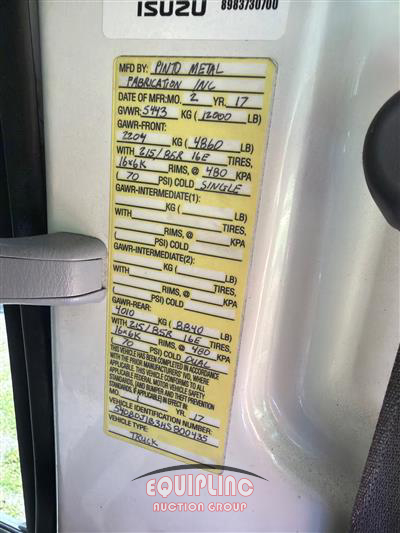 ISUZU 8983730700
MFD BY: PINTO METAL
FABRICATION INC
DATE OF MFR: MO. 2 YR. 17
GVWR: 5443 KG ( 12000 LB)
GAWR-FRONT:
2204 KG ( 4860 LB)
WITH 215/85R 16E TIRES,
16x6K RIMS, @ 480 KPA
( 70 PSI) COLD SINGLE
GAWR-INTERMEDIATE(1):
KG ( LB)
WITH TIRES,
RIMS, @ KPA
( PSI) COLD
GAWR-INTERMEDIATE(2):
KG ( LB)
WITH TIRES,
RIMS, @ KPA
( PSI) COLD
GAWR-REAR:
4010 KG ( 8840 LB)
WITH 215/85R 16E TIRES,
16x6K RIMS, @ 480 KPA
( 70 PSI) COLD DUAL
THIS VEHICLE HAS BEEN COMPLETED IN ACCORDANCE
WITH THE PRIOR MANUFACTURERS' IVD, WHERE
APPLICABLE. THIS VEHICLE CONFORMS TO ALL
APPLICABLE FEDERAL MOTOR VEHICLE SAFETY
STANDARDS, [AND BUMPER AND THEFT PREVENTION
STANDARDS, IF APPLICABLE] IN EFFECT IN
MO 1 YR. 17
VEHICLE IDENTIFICATION NUMBER:
54DBDJ1B3HS800435
VEHICLE TYPE:
TRUCK
EQUIPLINC
AUCTION GROUP